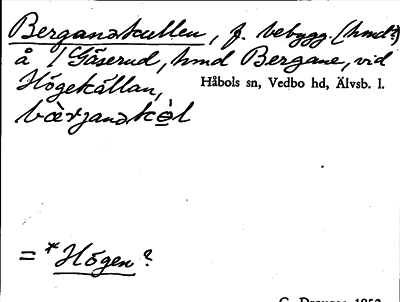 Berganəkullen, f. bebygg. (hmd?)
å 1 Gåserud, hmd Bergane, vid
Högekällan,
Håbols sn, Vedbo hd, Älvsb. l.
bæ̀rjanəkò̤l
= *Högen?